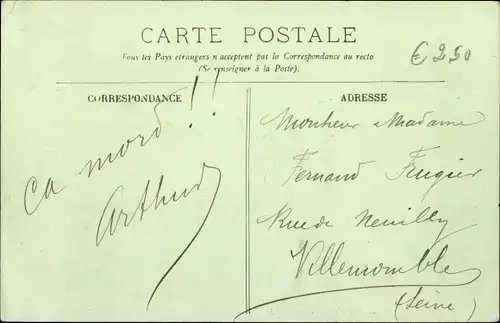 CARTE POSTALE
Tous les Pays etrangers n'acceptent pas la Correspondance au recto
(Se renseigner à la Poste).
€ 250
CORRESPONDANCE
ADRESSE
Ca mord !!
Arthur
Monsieur Madame
Fernand Frugier
Rue de Neuilly
Villemomble
(Seine)